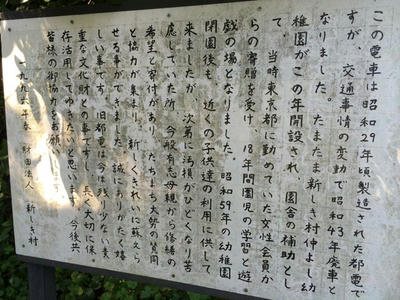 この電車は昭和29年頃製造された都電で
すが、交通事情の変動で昭和43年廃車と
なりました。たまたま新しき村仲よし幼
稚園がこの年開設され、園舎の補助とし
て、当時東京都に勤めていた女性会員か
らの寄贈を受け、18年間園児の学習と遊
戯の場となりました。昭和59年の幼稚園
閉園後も、近くの子供達の利用に供して
来ましたが、次第に汚損がひどくなり苦
慮していた所、今般有志母親から修繕の
希望と寄付があり、たちまち大勢の賛同
と協力が集まり、新しくきれいに蘇えら
せる事ができました。誠にありがたく嬉
しい事です。旧都電は今は残り少ない貴
重な文化財との事ですし、長く大切に保
存活用してゆきたいと思います。今後共
皆様の御協力をお願い
一九九六年春 財団法人 新しき村